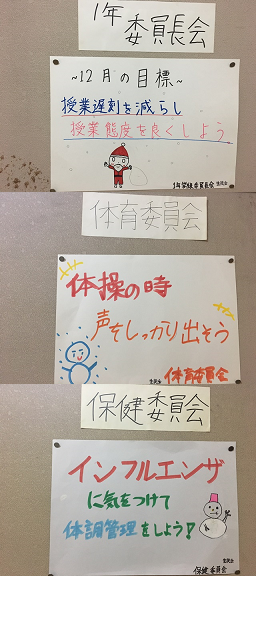 1年委員長会
~12月の目標~
授業遅刻を減らし
授業態度を良くしよう
1年学級委員長会
体育委員会
体操の時
声をしっかり出そう
体育委員会
保健委員会
インフルエンザ
に気をつけて
体調管理をしよう!
保健委員会